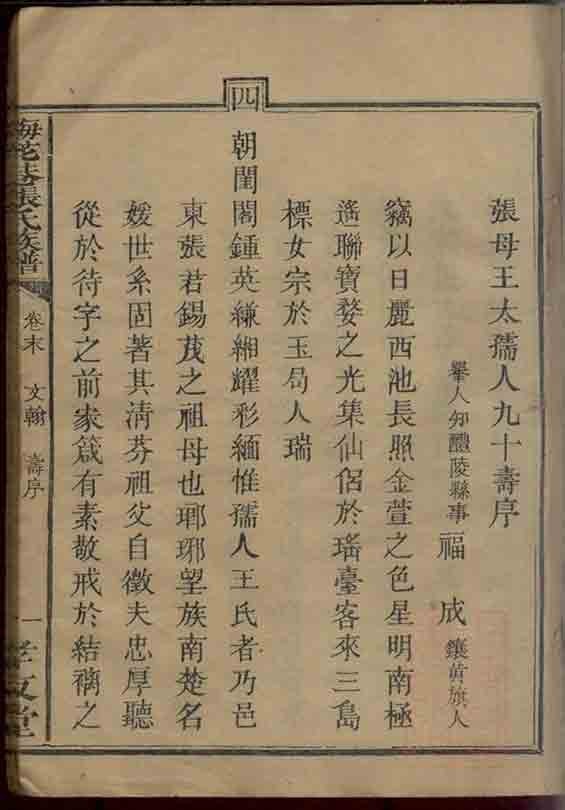 張母王太孺人九十壽序
舉人知醴陵縣事 福成 鑲黃旗人
竊以日麗西池長照金萱之色星明南極
遙聯寶婺之光集仙侶於瑤臺客來三島
標女宗於玉局人瑞
四
朝閨閤鍾英縑緗耀彩緬惟孺人王氏者乃邑
東張君錫茂之祖母也瑯琊望族南楚名
媛世系固著其清芬祖父自徵夫忠厚聽
從於待字之前家箴有素敬戒於結褵之
梅花巷張氏族譜
卷末 文翰 壽序
一
孝友堂